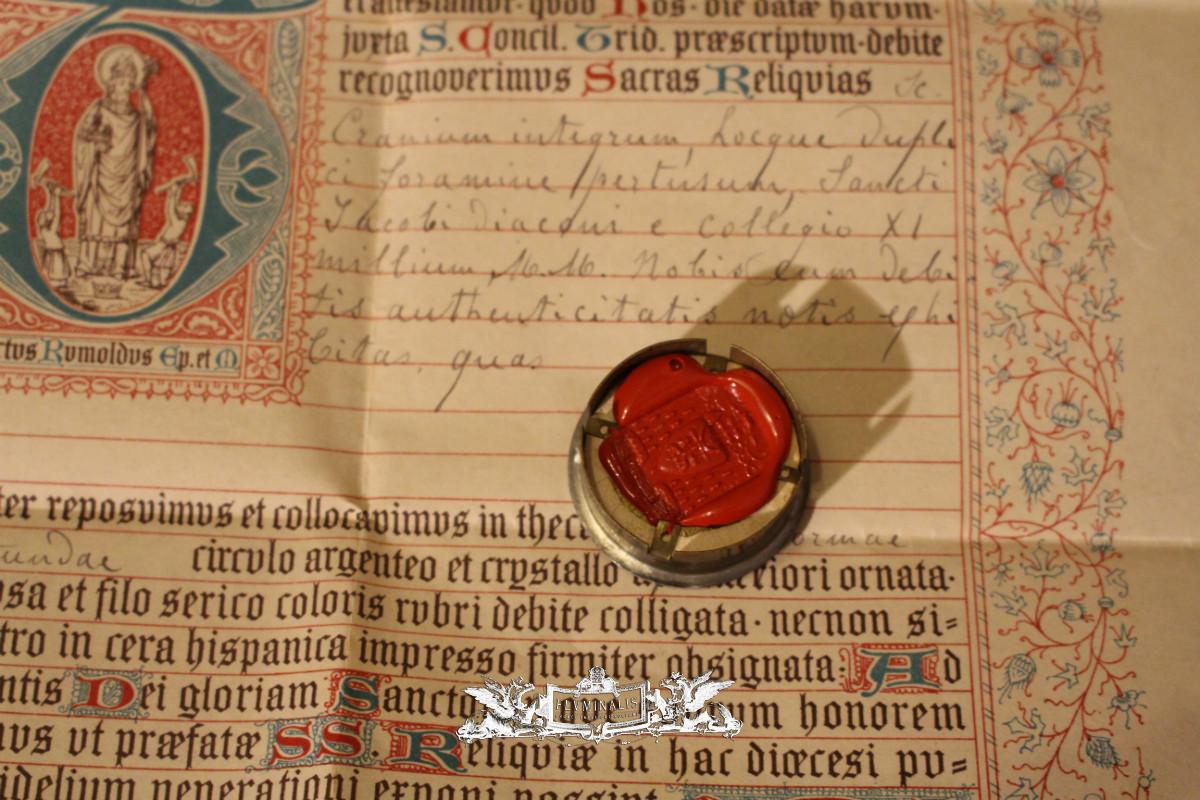 et attestamur, quod Nos, die datæ harum,
juxta S. Concil. Trid. præscriptum, debite
recognoverimus Sacras Reliquias Sc.
Cranium integrum, hocque dupli
ci foramine pertusum, Sancti
Jacobi diaconi e collegio XI
millium M.M. Nobis cum debi
tis authenticitatis notis exhi
bitas, quas
ctus Rumoldus Ep. et M
ter reposuimus et collocavimus in thec
undae circulo argenteo et crystallo formae eriori ornata.
osa et filo serico coloris rubri debite colligata, necnon si=
tro in cera hispanica impresso firmiter obsignata: Ad
ntis Dei gloriam Sancto um honorem
us ut præfatæ SS. Reliquiæ in hac diœcesi pu=
idelium venerationi exponi possint
FLUMINALIS